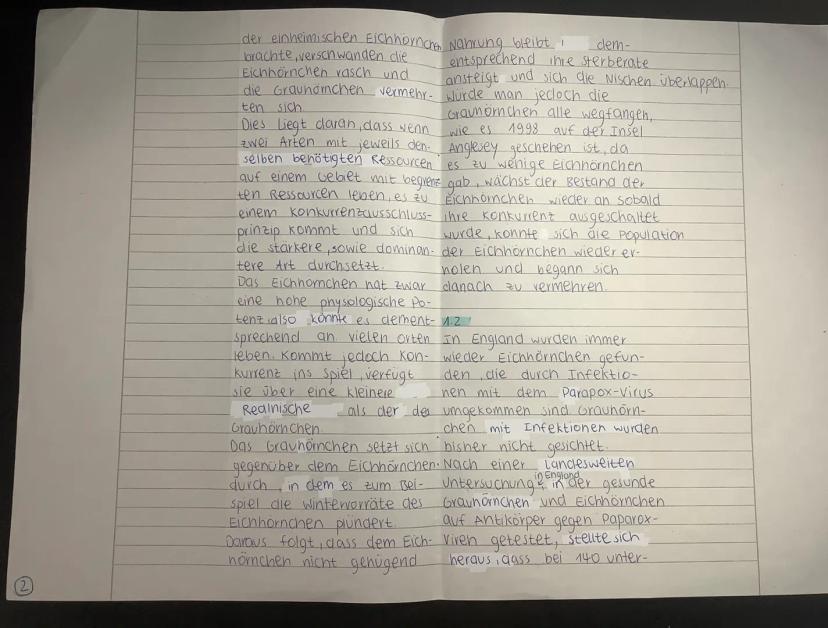 der einheimischen Eichhörnchen
brachte, verschwanden die
Eichhörnchen rasch und
die Grauhörnchen vermehr-
ten sich.
Dies liegt daran, dass wenn
zwei Arten mit jeweils den-
selben benötigten Ressourcen
auf einem Gebiet mit begrenz
ten Ressourcen leben, es zu
einem Konkurrenzausschluss-
prinzip kommt und sich
die stärkere, sowie dominan-
tere Art durchsetzt.
Das Eichhörnchen hat zwar
eine hohe physiologische Po-
tenz, also könnte es dement-
sprechend an vielen Orten
leben. Kommt jedoch Kon-
kurrenz ins Spiel, verfügt
sie über eine kleinere
Realnische als der des
Grauhörnchen.
Das Grauhörnchen setzt sich
gegenüber dem Eichhörnchen
durch, in dem es zum Bei-
spiel die Wintervorräte des
Eichhörnchen plündert.
Daraus folgt, dass dem Eich-
hörnchen nicht genügend
2
Nahrung bleibt, dem-
entsprechend ihre Sterberate
ansteigt und sich die Nischen überlappen.
Würde man jedoch die
Grauhörnchen alle wegfangen,
wie es 1998 auf der Insel
Anglesey geschehen ist, da
es zu wenige Eichhörnchen
gab, wächst der Bestand der
Eichhörnchen wieder an. Sobald
ihre Konkurrent ausgeschaltet
wurde, konnte sich die Population
der Eichhörnchen wieder er-
holen und begann sich
danach zu vermehren.
1.2
In England wurden immer
wieder Eichhörnchen gefun-
den, die durch Infektio-
nen mit dem Parapox-Virus
umgekommen sind. Grauhörn-
chen mit Infektionen wurden
bisher nicht gesichtet.
Nach einer landesweiten
Untersuchung in England, in der gesunde
Grauhörnchen und Eichhörnchen
auf Antikörper gegen Paparox-
Viren getestet, stellte sich
heraus, dass bei 140 unter-